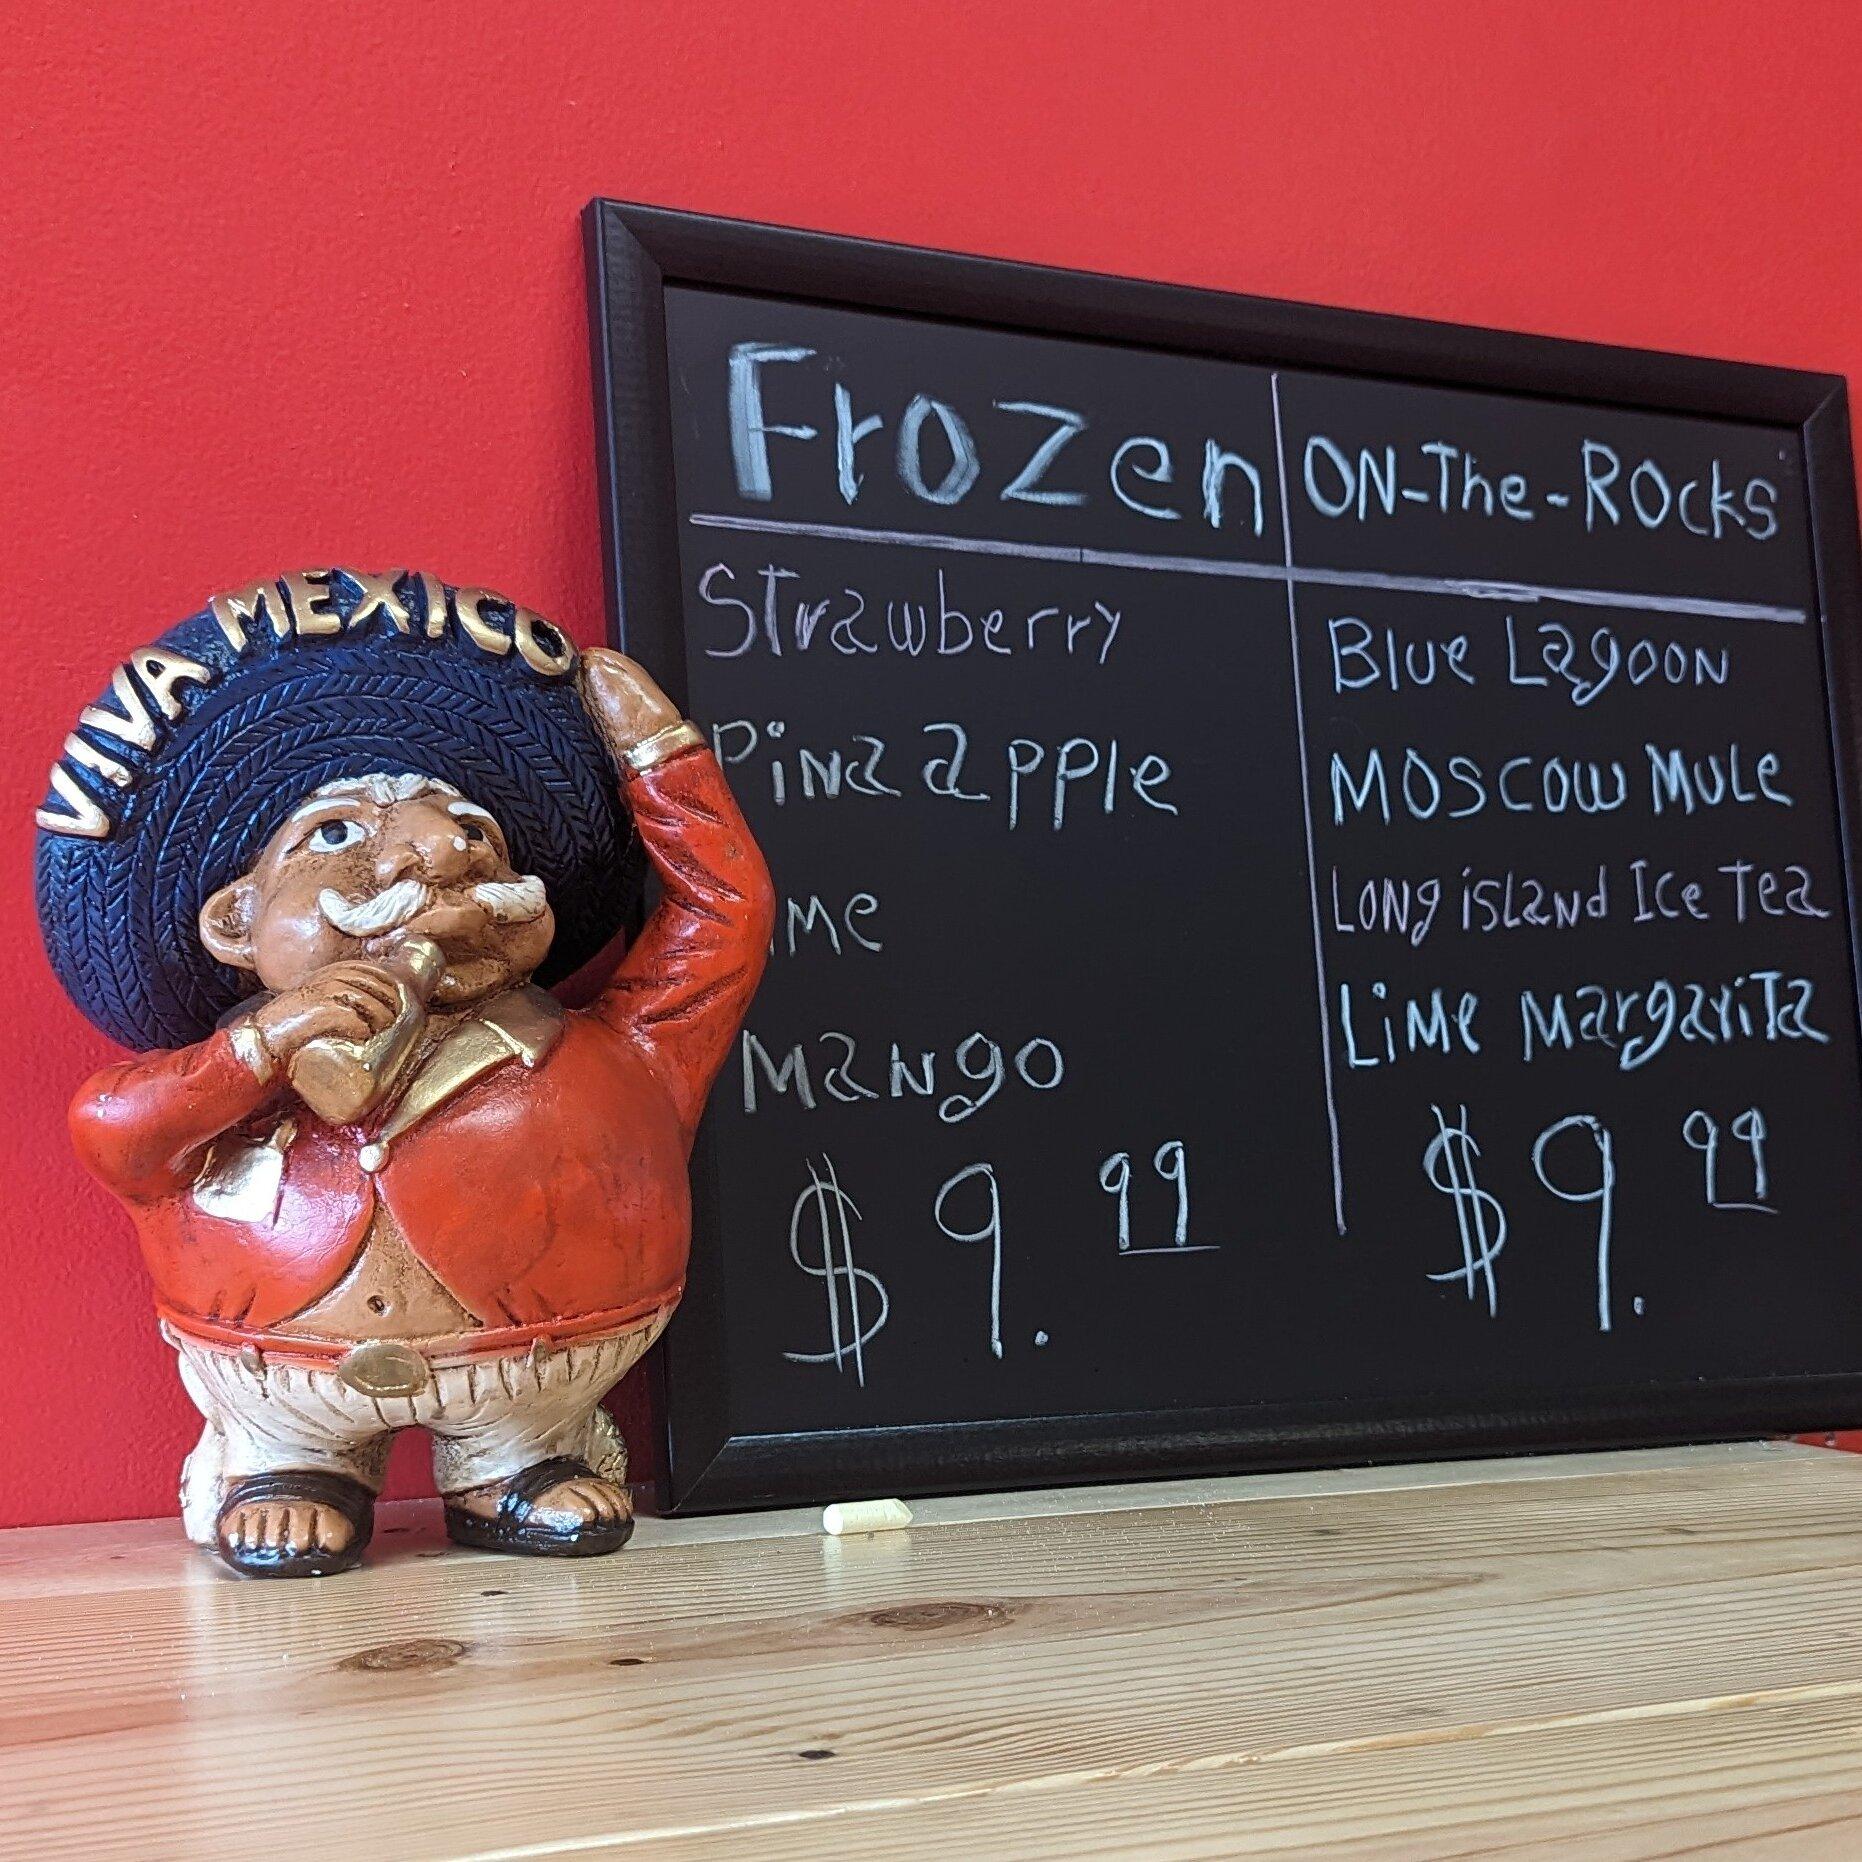 VIVA MEXICO
Frozen
Strawberry
Pinaapple
ime
Mango
$9.99
ON-The-ROcks
Blue Lagoon
Moscow Mule
Long island Ice Tea
Lime Margarita
$9.99